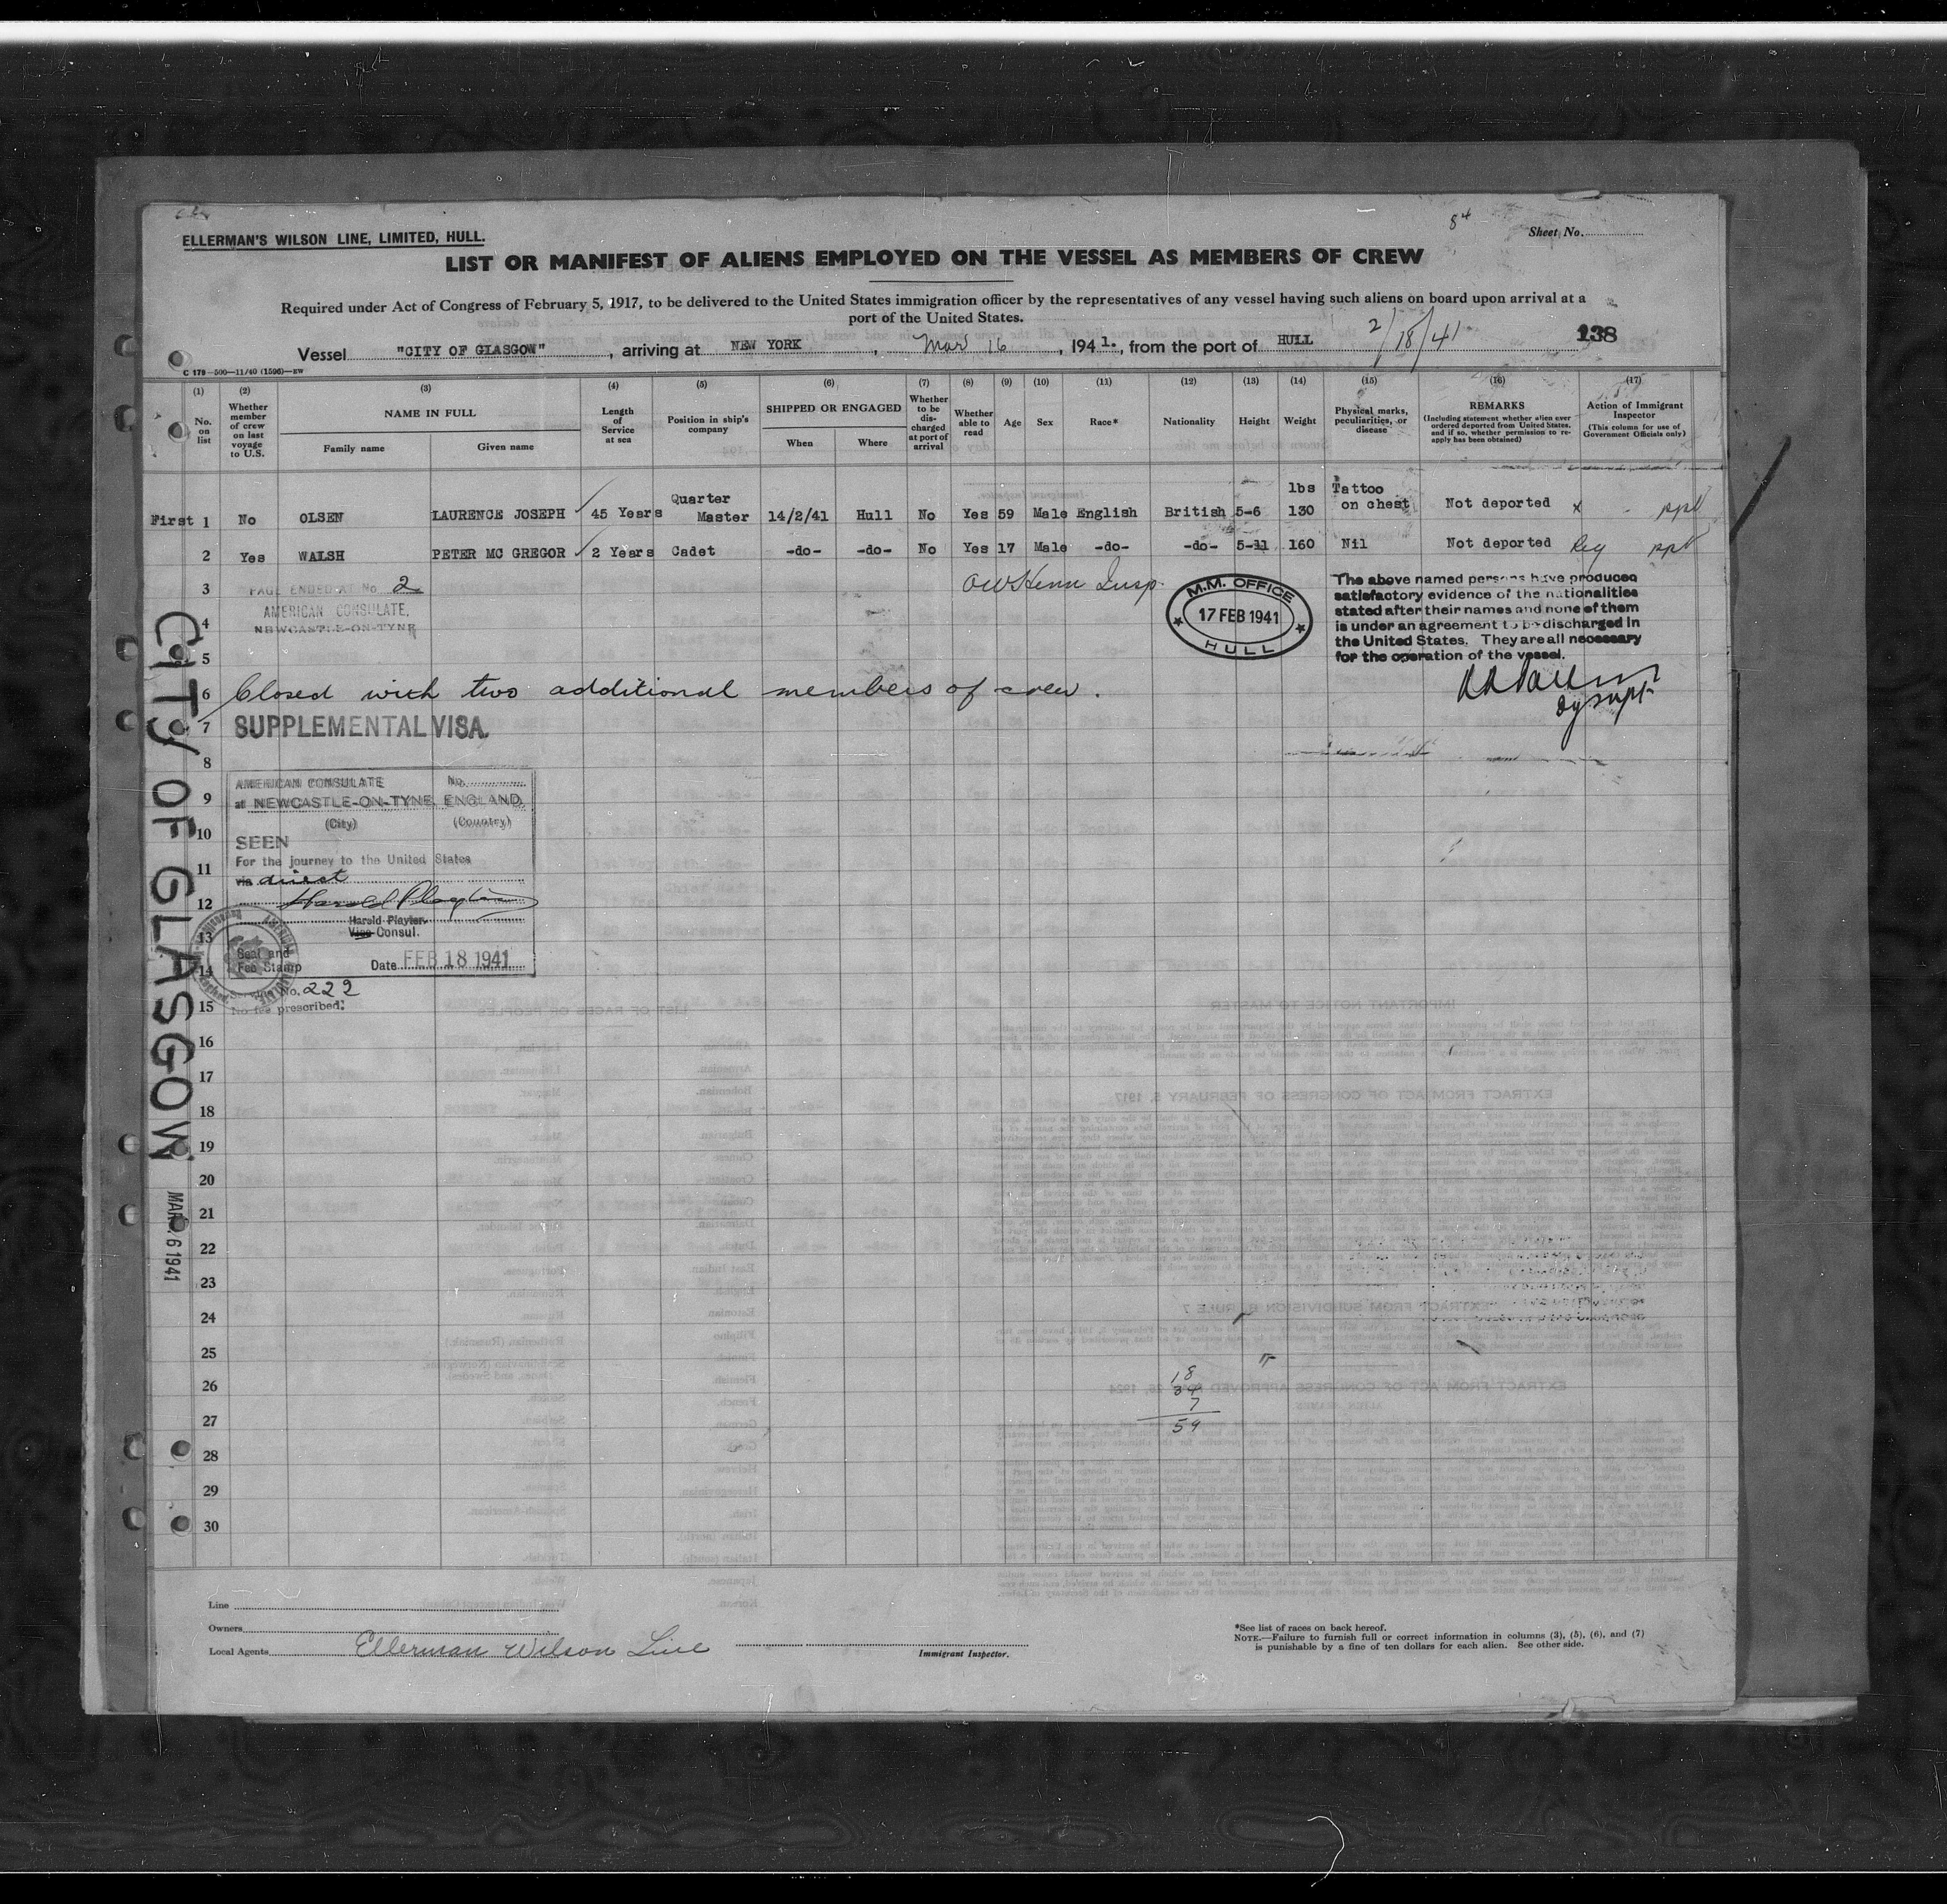 ELLERMAN'S WILSON LINE, LIMITED, HULL.
Sheet No.
LIST OR MANIFEST OF ALIENS EMPLOYED ON THE VESSEL AS MEMBERS OF CREW
Required under Act of Congress of February 5, 1917, to be delivered to the United States immigration officer by the representatives of any vessel having such aliens on board upon arrival at a
port of the United States.
Vessel "CITY OF GLASGOW", arriving at NEW YORK, Mar 16, 1941., from the port of HULL 2/18/41 138
C 178—500—11/40 (1596)—EW
(1) (2) (3) (4) (5) (6) (7) (8) (9) (10) (11) (12) (13) (14) (15) (16) (17)
No. on list
Whether member of crew on last voyage to U.S.
NAME IN FULL
Family name
Given name
Length of Service at sea
Position in ship's company
SHIPPED OR ENGAGED
When
Where
Whether to be discharged at port of arrival
Whether able to read
Age
Sex
Race*
Nationality
Height
Weight
Physical marks, peculiarities, or disease
REMARKS
(Including statement whether alien ever ordered deported from United States, and if so, whether permission to re-apply has been obtained)
Action of Immigrant Inspector
(This column for use of Government Officials only)
First 1 No OLSEN LAURENCE JOSEPH 45 Years Quarter Master 14/2/41 Hull No Yes 59 Male English British 5-6 lbs 130 Tattoo on chest Not deported x
2 Yes WALSH PETER MC GREGOR 2 Years Cadet -do- -do- No Yes 17 Male -do- -do- 5-11 160 Nil Not deported Reg
3 PAGE ENDED AT No. 2
AMERICAN CONSULATE,
NEWCASTLE-ON-TYNE
4
5
M.M. OFFICE
17 FEB 1941
HULL
The above named persons have produced
satisfactory evidence of the nationalities
stated after their names and none of them
is under an agreement to be discharged in
the United States. They are all necessary
for the operation of the vessel.
6 Closed with two additional members of crew.
7 SUPPLEMENTAL VISA.
8
AMERICAN CONSULATE No.
9 at NEWCASTLE-ON-TYNE, ENGLAND.
(City) (Country)
10 SEEN
11 For the journey to the United States
via direct
12 Harold Playter
Harold Playter
13 Vice Consul.
14 Seal and
Fee Stamp
Date FEB 18 1941
No. 222
15 No fee prescribed.
16
17
18
19
20
21
22
23
24
25
26
27
28
29
30
18
34
7
59
CITY OF GLASGOW
MAR 16 1941
Line
Owners
Local Agents Ellerman Wilson Line
Immigrant Inspector.
*See list of races on back hereof.
NOTE.—Failure to furnish full or correct information in columns (3), (5), (6), and (7)
is punishable by a fine of ten dollars for each alien. See other side.